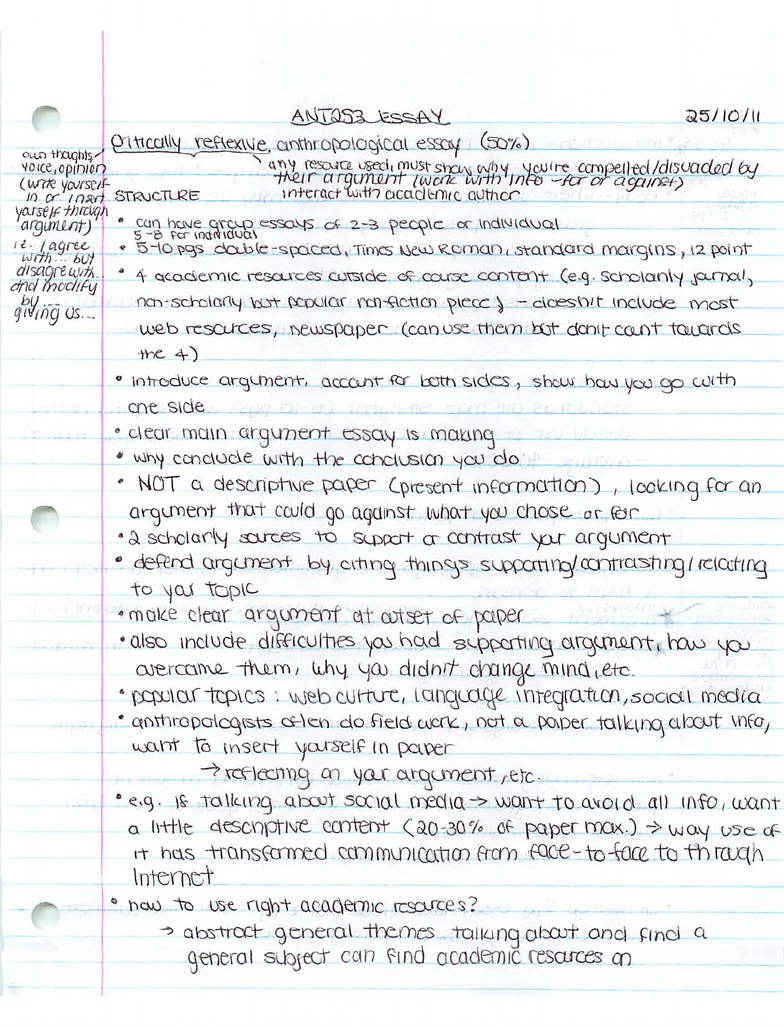 ANT253 ESSAY
25/10/11
critically reflexive, anthropological essay (50%)
own thoughts
voice, opinion
(write yourself
in or insert
yourself through
argument)
i.e. I agree
with... but
disagree with...
and modify
by...
giving us...
any resource used, must show why you're compelled/disuaded by
their argument (work with info - for or against)
interact with academic author
STRUCTURE
• can have group essays of 2-3 people or individual
5-8 for individual
• 5-10 pgs double-spaced, Times New Roman, standard margins, 12 point
• 4 academic resources outside of course content (e.g. scholarly journal,
non-scholarly but popular non-fiction piece) - doesn't include most
web resources, newspaper (can use them but don't count towards
the 4)
• introduce argument, account for both sides, show how you go with
one side
• clear main argument essay is making
• why conclude with the conclusion you do
• NOT a descriptive paper (present information), looking for an
argument that could go against what you chose or for
• 2 scholarly sources to support or contrast your argument
• defend argument by citing things supporting/contrasting/relating
to your topic
• make clear argument at outset of paper
• also include difficulties you had supporting argument, how you
overcame them, why you didn't change mind, etc.
• popular topics: web culture, language integration, social media
• anthropologists often do field work, not a paper talking about info,
want to insert yourself in paper
→ reflecting on your argument, etc.
• e.g. if talking about social media → want to avoid all info, want
a little descriptive content (20-30% of paper max.) → way use of
it has transformed communication from face-to-face to through
Internet
• how to use right academic resources?
→ abstract general themes talking about and find a
general subject can find academic resources on